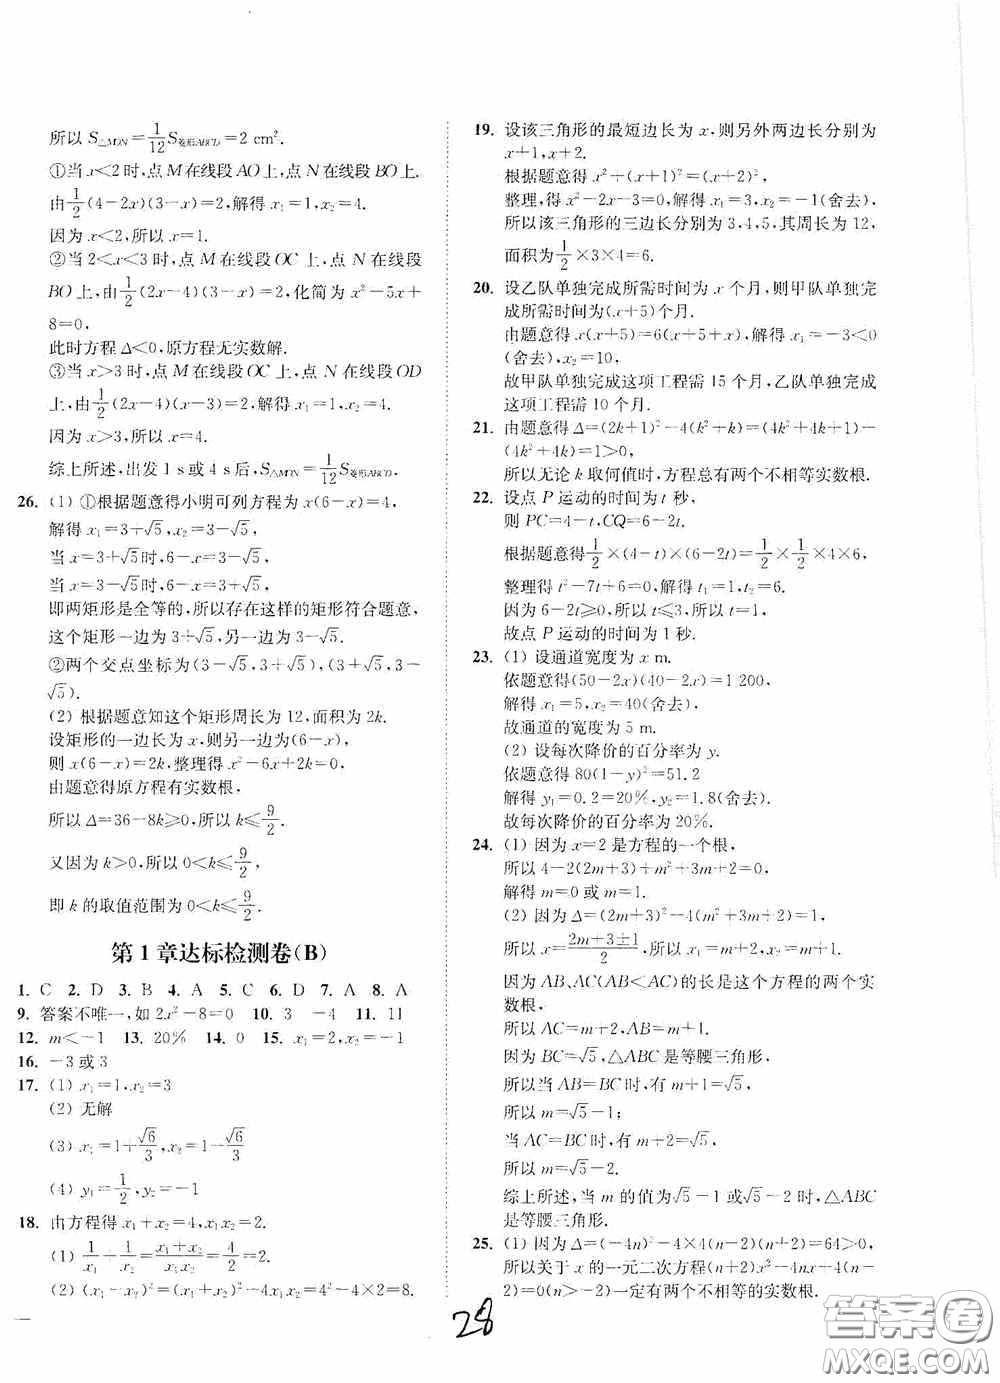 所以 S△MDN=1/12 S菱形ABCD=2 cm².
①当 x<2 时,点 M 在线段 AO 上,点 N 在线段 BO 上.
由 1/2 (4-2x)(3-x)=2,解得 x₁=1,x₂=4.
因为 x<2,所以 x=1.
②当 2<x<3 时,点 M 在线段 OC 上,点 N 在线段
BO 上,由 1/2 (2x-4)(3-x)=2,化简为 x²-5x+
8=0.
此时方程 Δ<0,原方程无实数解.
③当 x>3 时,点 M 在线段 OC 上,点 N 在线段 OD
上,由 1/2 (2x-4)(x-3)=2,解得 x₁=1,x₂=4.
因为 x>3,所以 x=4.
综上所述,出发 1 s 或 4 s 后,S△MDN=1/12 S菱形ABCD.
26. (1) ①根据题意得小明可列方程为 x(6-x)=4,
解得 x₁=3+√5,x₂=3-√5.
当 x=3+√5时,6-x=3-√5,
当 x=3-√5时,6-x=3+√5,
即两矩形是全等的,所以存在这样的矩形符合题意,
这个矩形一边为 3+√5,另一边为 3-√5.
②两个交点坐标为(3-√5,3+√5),(3+√5,3-
√5).
(2) 根据题意知这个矩形周长为 12,面积为 2k.
设矩形的一边长为 x,则另一边为(6-x),
则 x(6-x)=2k,整理得 x²-6x+2k=0.
由题意得原方程有实数根,
所以 Δ=36-8k≥0,所以 k≤9/2.
又因为 k>0,所以 0<k≤9/2,
即 k 的取值范围为 0<k≤9/2.
第 1 章达标检测卷(B)
1. C 2. D 3. B 4. A 5. C 6. D 7. A 8. A
9. 答案不唯一,如 2x²-8=0 10. 3 -4 11. 11
12. m<-1 13. 20% 14. 0 15. x₁=2,x₂=-1
16. -3 或 3
17. (1) x₁=1,x₂=3
(2) 无解
(3) x₁=1+√6/3,x₂=1-√6/3
(4) y₁=1/2,y₂=-1
18. 由方程得 x₁+x₂=4,x₁x₂=2.
(1) 1/x₁+1/x₂=(x₁+x₂)/(x₁x₂)=4/2=2.
(2) (x₁-x₂)²=(x₁+x₂)²-4x₁x₂=4²-4×2=8.
19. 设该三角形的最短边长为 x,则另外两边长分别为
x+1,x+2.
根据题意得 x²+(x+1)²=(x+2)²,
整理,得 x²-2x-3=0,解得 x₁=3,x₂=-1(舍去),
所以该三角形的三边长分别为 3,4,5,其周长为 12,
面积为 1/2×3×4=6.
20. 设乙队单独完成所需时间为 x 个月,则甲队单独完
成所需时间为(x+5)个月.
由题意得 x(x+5)=6(x+5+x),解得 x₁=-3<0
(舍去),x₂=10,
故甲队单独完成这项工程需 15 个月,乙队单独完成
这项工程需 10 个月.
21. 由题意得 Δ=(2k+1)²-4(k²+k)=(4k²+4k+1)-
(4k²+4k)=1>0,
所以无论 k 取何值时,方程总有两个不相等实数根.
22. 设点 P 运动的时间为 t 秒,
则 PC=4-t,CQ=6-2t.
根据题意得 1/2×(4-t)×(6-2t)=1/2×1/2×4×6,
整理得 t²-7t+6=0,解得 t₁=1,t₂=6.
因为 6-2t≥0,所以 t≤3,所以 t=1,
故点 P 运动的时间为 1 秒.
23. (1) 设通道宽度为 x m.
依题意得(50-2x)(40-2x)=1 200,
解得 x₁=5,x₂=40(舍去),
故通道的宽度为 5 m.
(2) 设每次降价的百分率为 y.
依题意得 80(1-y)²=51.2
解得 y₁=0.2=20%,y₂=1.8(舍去).
故每次降价的百分率为 20%.
24. (1) 因为 x=2 是方程的一个根,
所以 4-2(2m+3)+m²+3m+2=0,
解得 m=0 或 m=1.
(2) 因为 Δ=(2m+3)²-4(m²+3m+2)=1,
所以 x=(2m+3±1)/2,
因为 AB、AC(AB<AC)的长是这个方程的两个实
数根,
所以 AC=m+2,AB=m+1.
因为 BC=√5,△ABC 是等腰三角形,
所以当 AB=BC 时,有 m+1=√5,
所以 m=√5-1;
当 AC=BC 时,有 m+2=√5,
所以 m=√5-2.
综上所述,当 m 的值为√5-1 或√5-2 时,△ABC
是等腰三角形.
25. (1) 因为 Δ=(-4n)²-4×4(n+2)(n-2)=64>0,
所以关于 x 的一元二次方程(n+2)x²-4nx+4(n-
2)=0(n>-2)一定有两个不相等的实数根.
28
答案圈
MXQE.COM